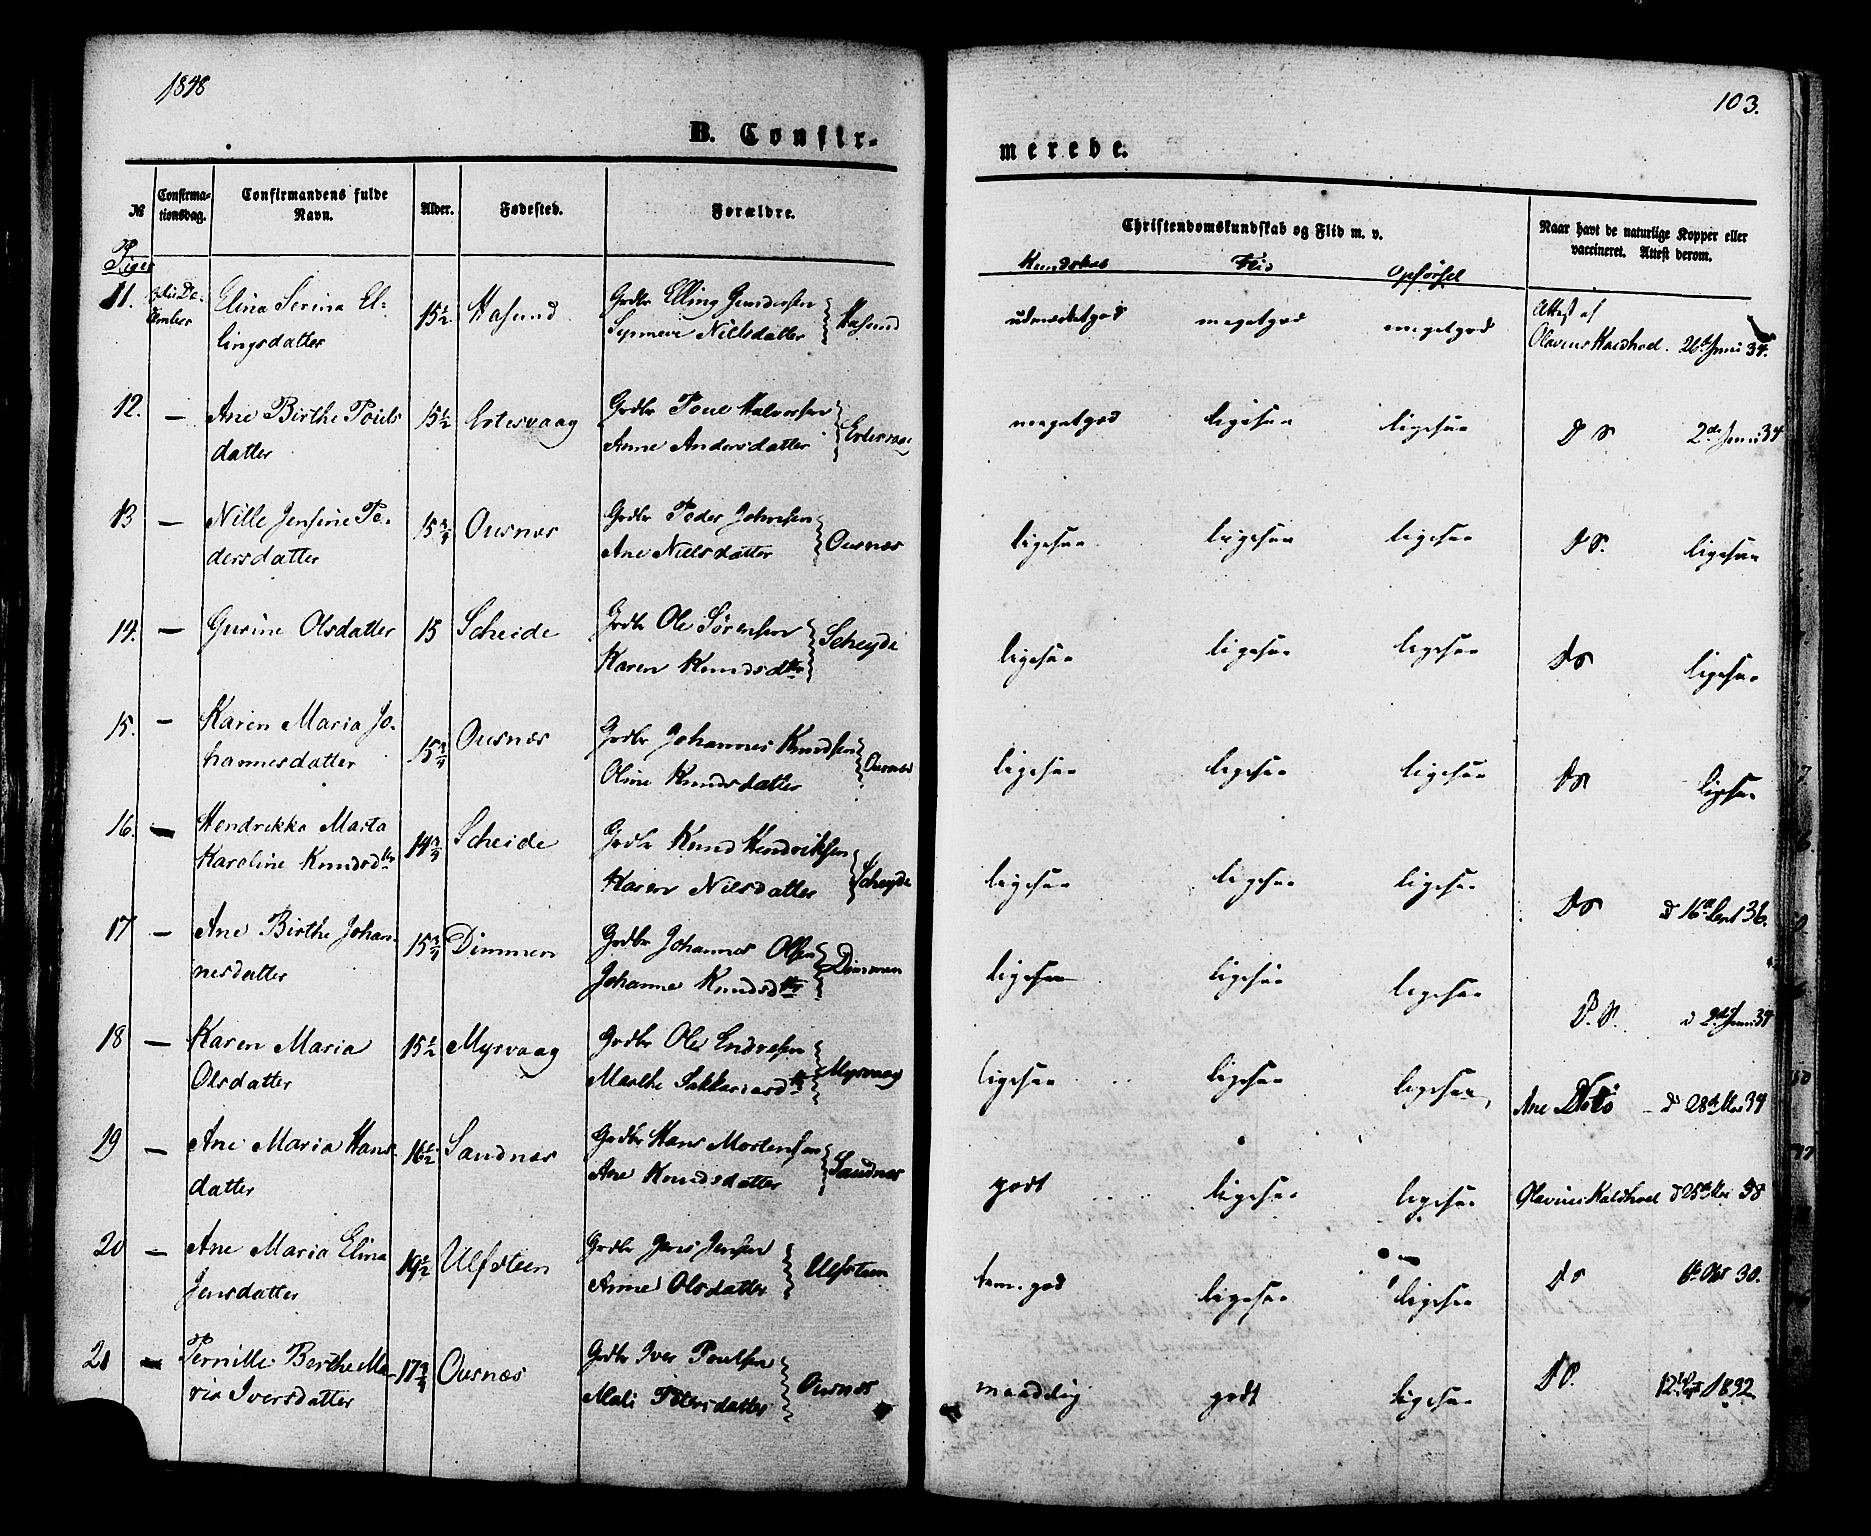 1848
103.
B. Confir-
merede.
№
Confirma-
tionsdag.
Confirmandens fulde
Navn.
Alder.
Fødested.
Forældre.
Christendomskundskab og Flid m. v.
Kundskab Flid Opførsel
Naar havt de naturlige Kopper eller
vaccineret. Attest derom.
Piger
11. Elina Serina El-
lingsdatter
15½ Hasund
Grdbr Elling
Synneve Nielsdatter } Hasund
udmærketgod megetgod megetgod
Attest af
Olavius Kaldhoel. 26de Juni 34.
12. — Ane Birthe Pouls
datter
15½ Ertesvaag
Grdbr Poul Halvorsen
Anne Andersdatter } Ertesvaag
megetgod ligesaa ligesaa
D S 2den Juni 34
13 — Nille Jensine Pe-
dersdatter
15¾ Ousnæs
Grdbr Peder Johnsen
Ane Nielsdatter } Ousnæs
ligesaa ligesaa ligesaa
D S. ligesaa
14. — Gurine Olsdatter 15 Scheide
Grdbr Ole Sørensen
Karen Knudsdtr } Scheyde
ligesaa ligesaa ligesaa
DS ligesaa
15. — Karen Maria Jo-
hannesdatter
15¾ Ousnæs
Grdbr Johannes Knudsen
Oline Knudsdatter } Ousnæs
ligesaa ligesaa ligesaa
DS ligesaa
16. — Hendrikka Marta
Karoline Knudsdtr
14¾ Scheide
Grdbr Knud Hendriksen
Karen Nilsdatter } Scheyde
ligesaa ligesaa ligesaa
DS d 16de Sept 36.
17 — Ane Birthe Johan-
nesdatter
15¾ Dimmen
Grdbr Johannes Olsen
Johanne Knudsdtr } Dimmen
ligesaa ligesaa ligesaa
D. S. d 2den Juni 34
18 — Karen Maria
Olsdatter
15½ Myrvaag
Grdbr Ole Endresen
Marthe Sakkariasdtr } Myrvaag
ligesaa ligesaa ligesaa
Ane d 28de Mai 34
19 — Ane Maria Hans-
datter
16½ Sandnæs
Grdbr Hans Mortensen
Ane Knudsdatter } Sandnæs
godt ligesaa ligesaa
Olavius Kaldhoel d 28de Mai 38
20 — Ane Maria Elina
Jensdatter
19½ Ulfsteen
Grdbr Jens Jensen
Anne Olsdatter } Ulfsteen
tem. god ligesaa ligesaa
DS 6te Obr 30.
21 — Pernille Berthe Ma-
ria Iversdatter
17¾ Ousnæs
Grdbr Iver Poulsen
Mali Petersdatter } Ousnæs
maadelig godt ligesaa
DS. 12te Sept 1832.